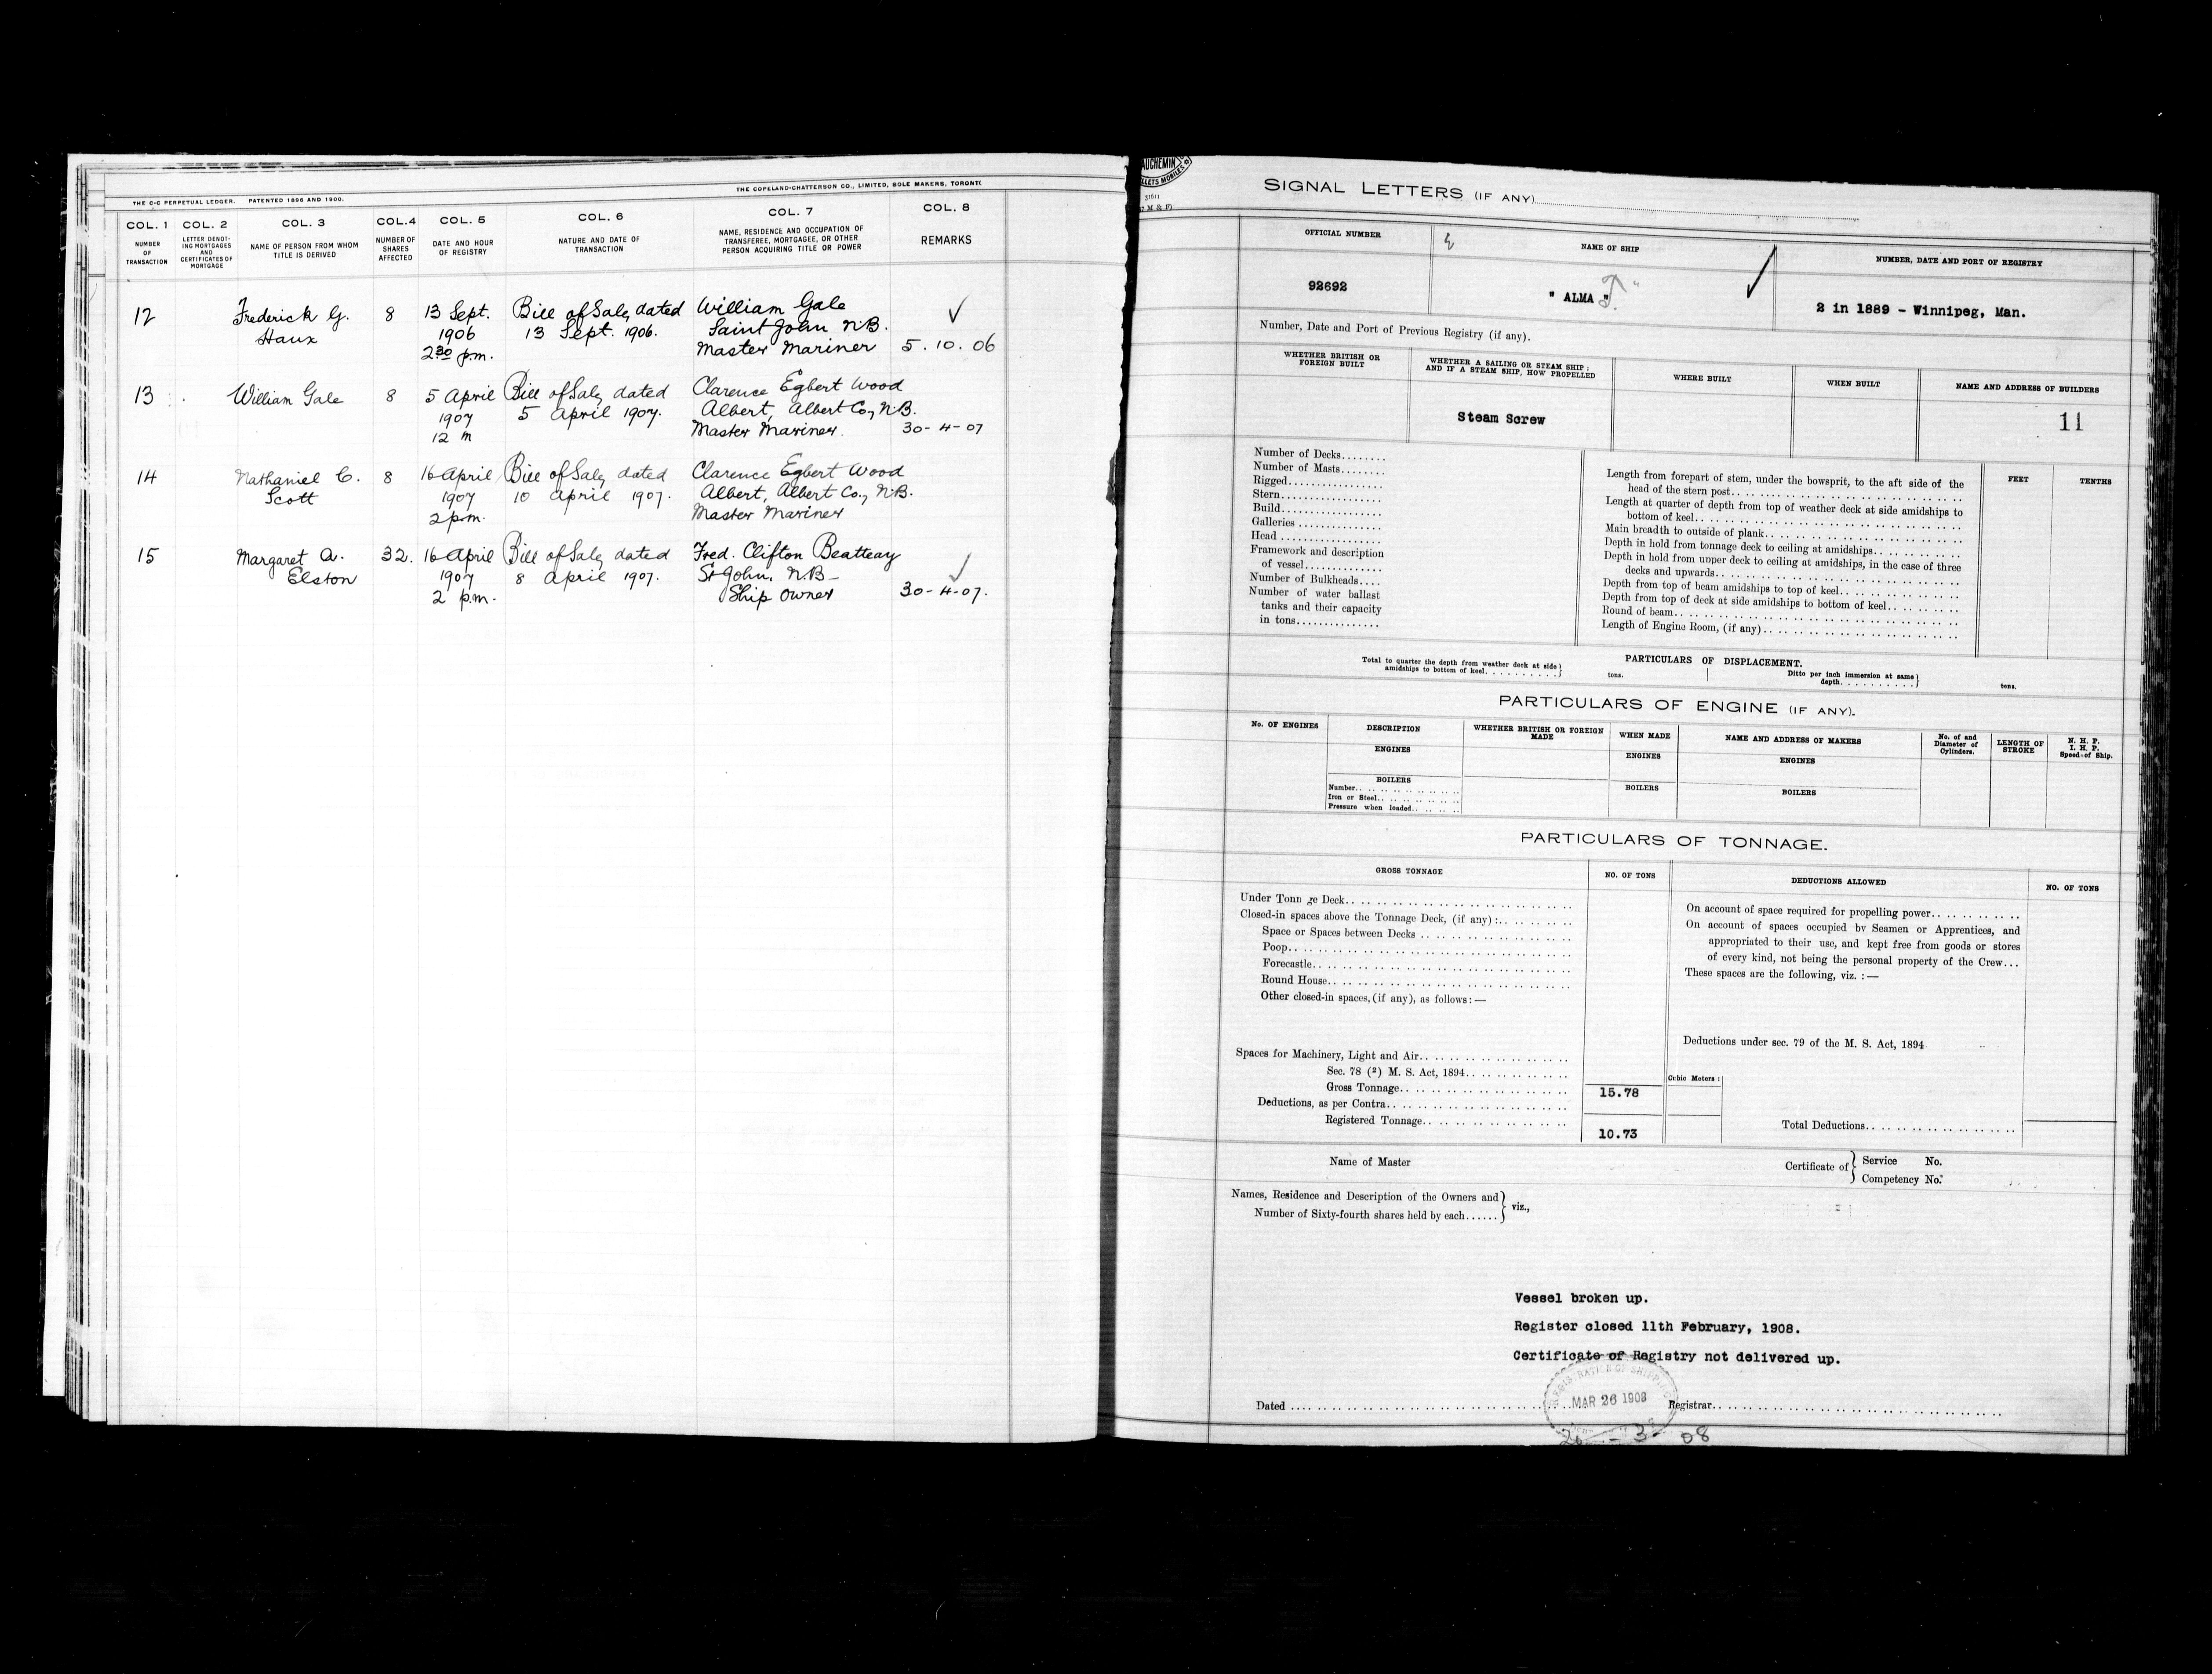 THE C-C PERPETUAL LEDGER. PATENTED 1896 AND 1900.
THE COPELAND-CHATTERSON CO., LIMITED, SOLE MAKERS, TORONT
COL. 1 COL. 2 COL. 3 COL.4 COL. 5 COL. 6 COL. 7 COL. 8
NUMBER OF TRANSACTION
LETTER DENOT-ING MORTGAGES AND CERTIFICATES OF MORTGAGE
NAME OF PERSON FROM WHOM TITLE IS DERIVED
NUMBER OF SHARES AFFECTED
DATE AND HOUR OF REGISTRY
NATURE AND DATE OF TRANSACTION
NAME, RESIDENCE AND OCCUPATION OF TRANSFEREE, MORTGAGEE, OR OTHER PERSON ACQUIRING TITLE OR POWER
REMARKS
12 Frederick G. 8 13 Sept. Bill of Sale, dated William Gale
Haux 1906 13 Sept. 1906. Saint John N.B.
2 30 p.m. Master Mariner 5. 10. 06
13 William Gale 8 5 April Bill of Sale, dated Clarence Egbert Wood
1907 5 April 1907. Albert, Albert Co., N.B.
12 m Master Mariner. 30-4-07
14 Nathaniel C. 8 16 April Bill of Sale, dated Clarence Egbert Wood
Scott 1907 10 April 1907. Albert, Albert Co., N.B.
2 p.m. Master Mariner
15 Margaret A. 32. 16 April Bill of Sale, dated Fred. Clifton Beatteay
Elston 1907 8 April 1907. St John, N.B-
2 p.m. Ship owner 30-4-07.
AUCHEMIN
LLETS MOBILES
31611
M. & F)
SIGNAL LETTERS (IF ANY)
OFFICIAL NUMBER NAME OF SHIP NUMBER, DATE AND PORT OF REGISTRY
92692 " ALMA " 2 in 1889 - Winnipeg, Man.
Number, Date and Port of Previous Registry (if any).
WHETHER BRITISH OR FOREIGN BUILT
WHETHER A SAILING OR STEAM SHIP; AND IF A STEAM SHIP, HOW PROPELLED
WHERE BUILT WHEN BUILT NAME AND ADDRESS OF BUILDERS
Steam Screw 11
Number of Decks........
Number of Masts........
Rigged................
Stern................
Build................
Galleries................
Head................
Framework and description
of vessel................
Number of Bulkheads....
Number of water ballast
tanks and their capacity
in tons................
FEET TENTHS
Length from forepart of stem, under the bowsprit, to the aft side of the
head of the stern post........
Length at quarter of depth from top of weather deck at side amidships to
bottom of keel........
Main breadth to outside of plank........
Depth in hold from tonnage deck to ceiling at amidships........
Depth in hold from upper deck to ceiling at amidships, in the case of three
decks and upwards........
Depth from top of beam amidships to top of keel........
Depth from top of deck at side amidships to bottom of keel........
Round of beam........
Length of Engine Room, (if any)........
PARTICULARS OF DISPLACEMENT.
Total to quarter the depth from weather deck at side
amidships to bottom of keel.......... tons.
Ditto per inch immersion at same
depth.......... tons.
PARTICULARS OF ENGINE (IF ANY).
No. OF ENGINES DESCRIPTION WHETHER BRITISH OR FOREIGN MADE WHEN MADE NAME AND ADDRESS OF MAKERS No. of and Diameter of Cylinders. LENGTH OF STROKE N. H. P. I. H. P. Speed of Ship.
ENGINES ENGINES ENGINES
BOILERS BOILERS BOILERS
Number........
Iron or Steel........
Pressure when loaded........
PARTICULARS OF TONNAGE.
GROSS TONNAGE NO. OF TONS DEDUCTIONS ALLOWED NO. OF TONS
Under Tonn ge Deck........
Closed-in spaces above the Tonnage Deck, (if any):........
Space or Spaces between Decks........
Poop........
Forecastle........
Round House........
Other closed-in spaces, (if any), as follows:—
Spaces for Machinery, Light and Air........
Sec. 78 (2) M. S. Act, 1894........
Gross Tonnage........ 15.78
Deductions, as per Contra........
Registered Tonnage........ 10.73
Cubic Meters:
On account of space required for propelling power........
On account of spaces occupied by Seamen or Apprentices, and
appropriated to their use, and kept free from goods or stores
of every kind, not being the personal property of the Crew...
These spaces are the following, viz. :—
Deductions under sec. 79 of the M. S. Act, 1894
Total Deductions........
Name of Master Certificate of Service No.
Competency No.
Names, Residence and Description of the Owners and
Number of Sixty-fourth shares held by each...... viz.,
Vessel broken up.
Register closed 11th February, 1908.
Certificate of Registry not delivered up.
MAR 26 1908
Dated ........ Registrar........
26 - 3 - 08